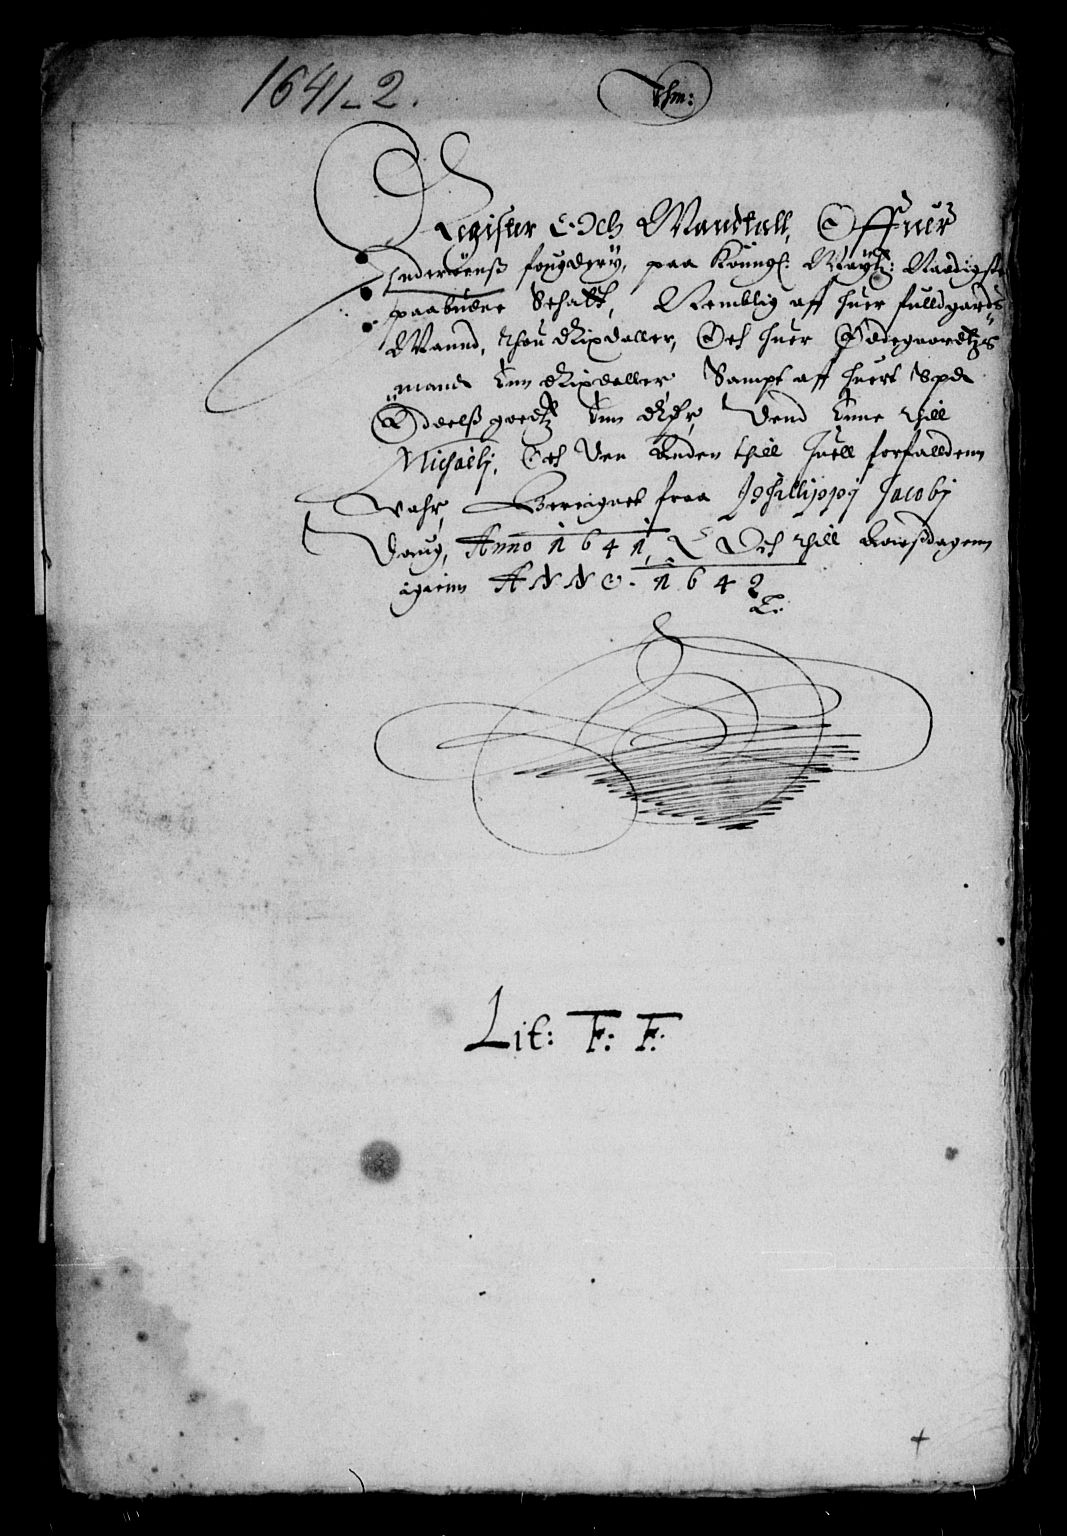 1641-2.
Thm:
Register Och Mandtall, Offuer
Inderøens fougderij, paa Kongl: Maytz: Naadigste
paabudne Schatt, Nemblig aff huer fulldgaards
Mannd, thou Rixdaller, Och huer Ødegaardtz
mand Enn Rixdaller Sampt aff huert Spd
Oddelss goedtz Enn Rdr, Dend Enne thill
Michaelj, Och Den Anden thill Juell forfalldenn
wahr, Beregnet fraa Phillippj Jacobj
Daug, Anno 1641, Och thill Aarssdagenn
igienn ANNO. 1642
Lit: F: F: